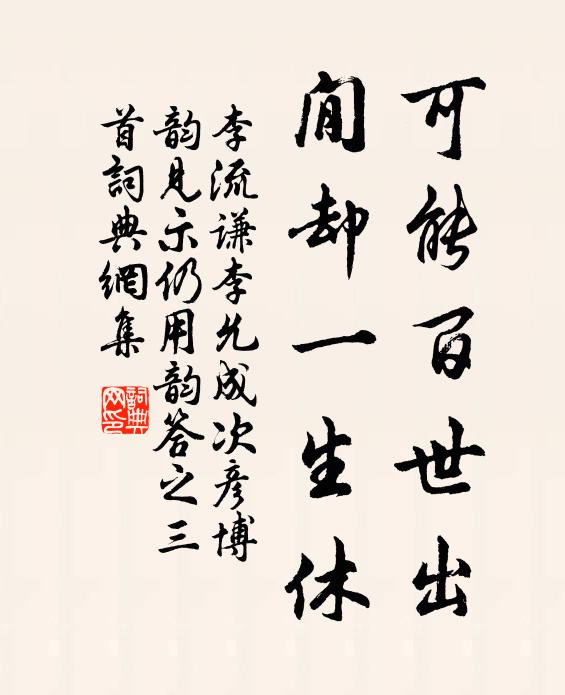 可能百世出
閒却一生休
李流谦李允成次彦博
韵見示仍用韵答之三
首詞典網集
詞典
网印